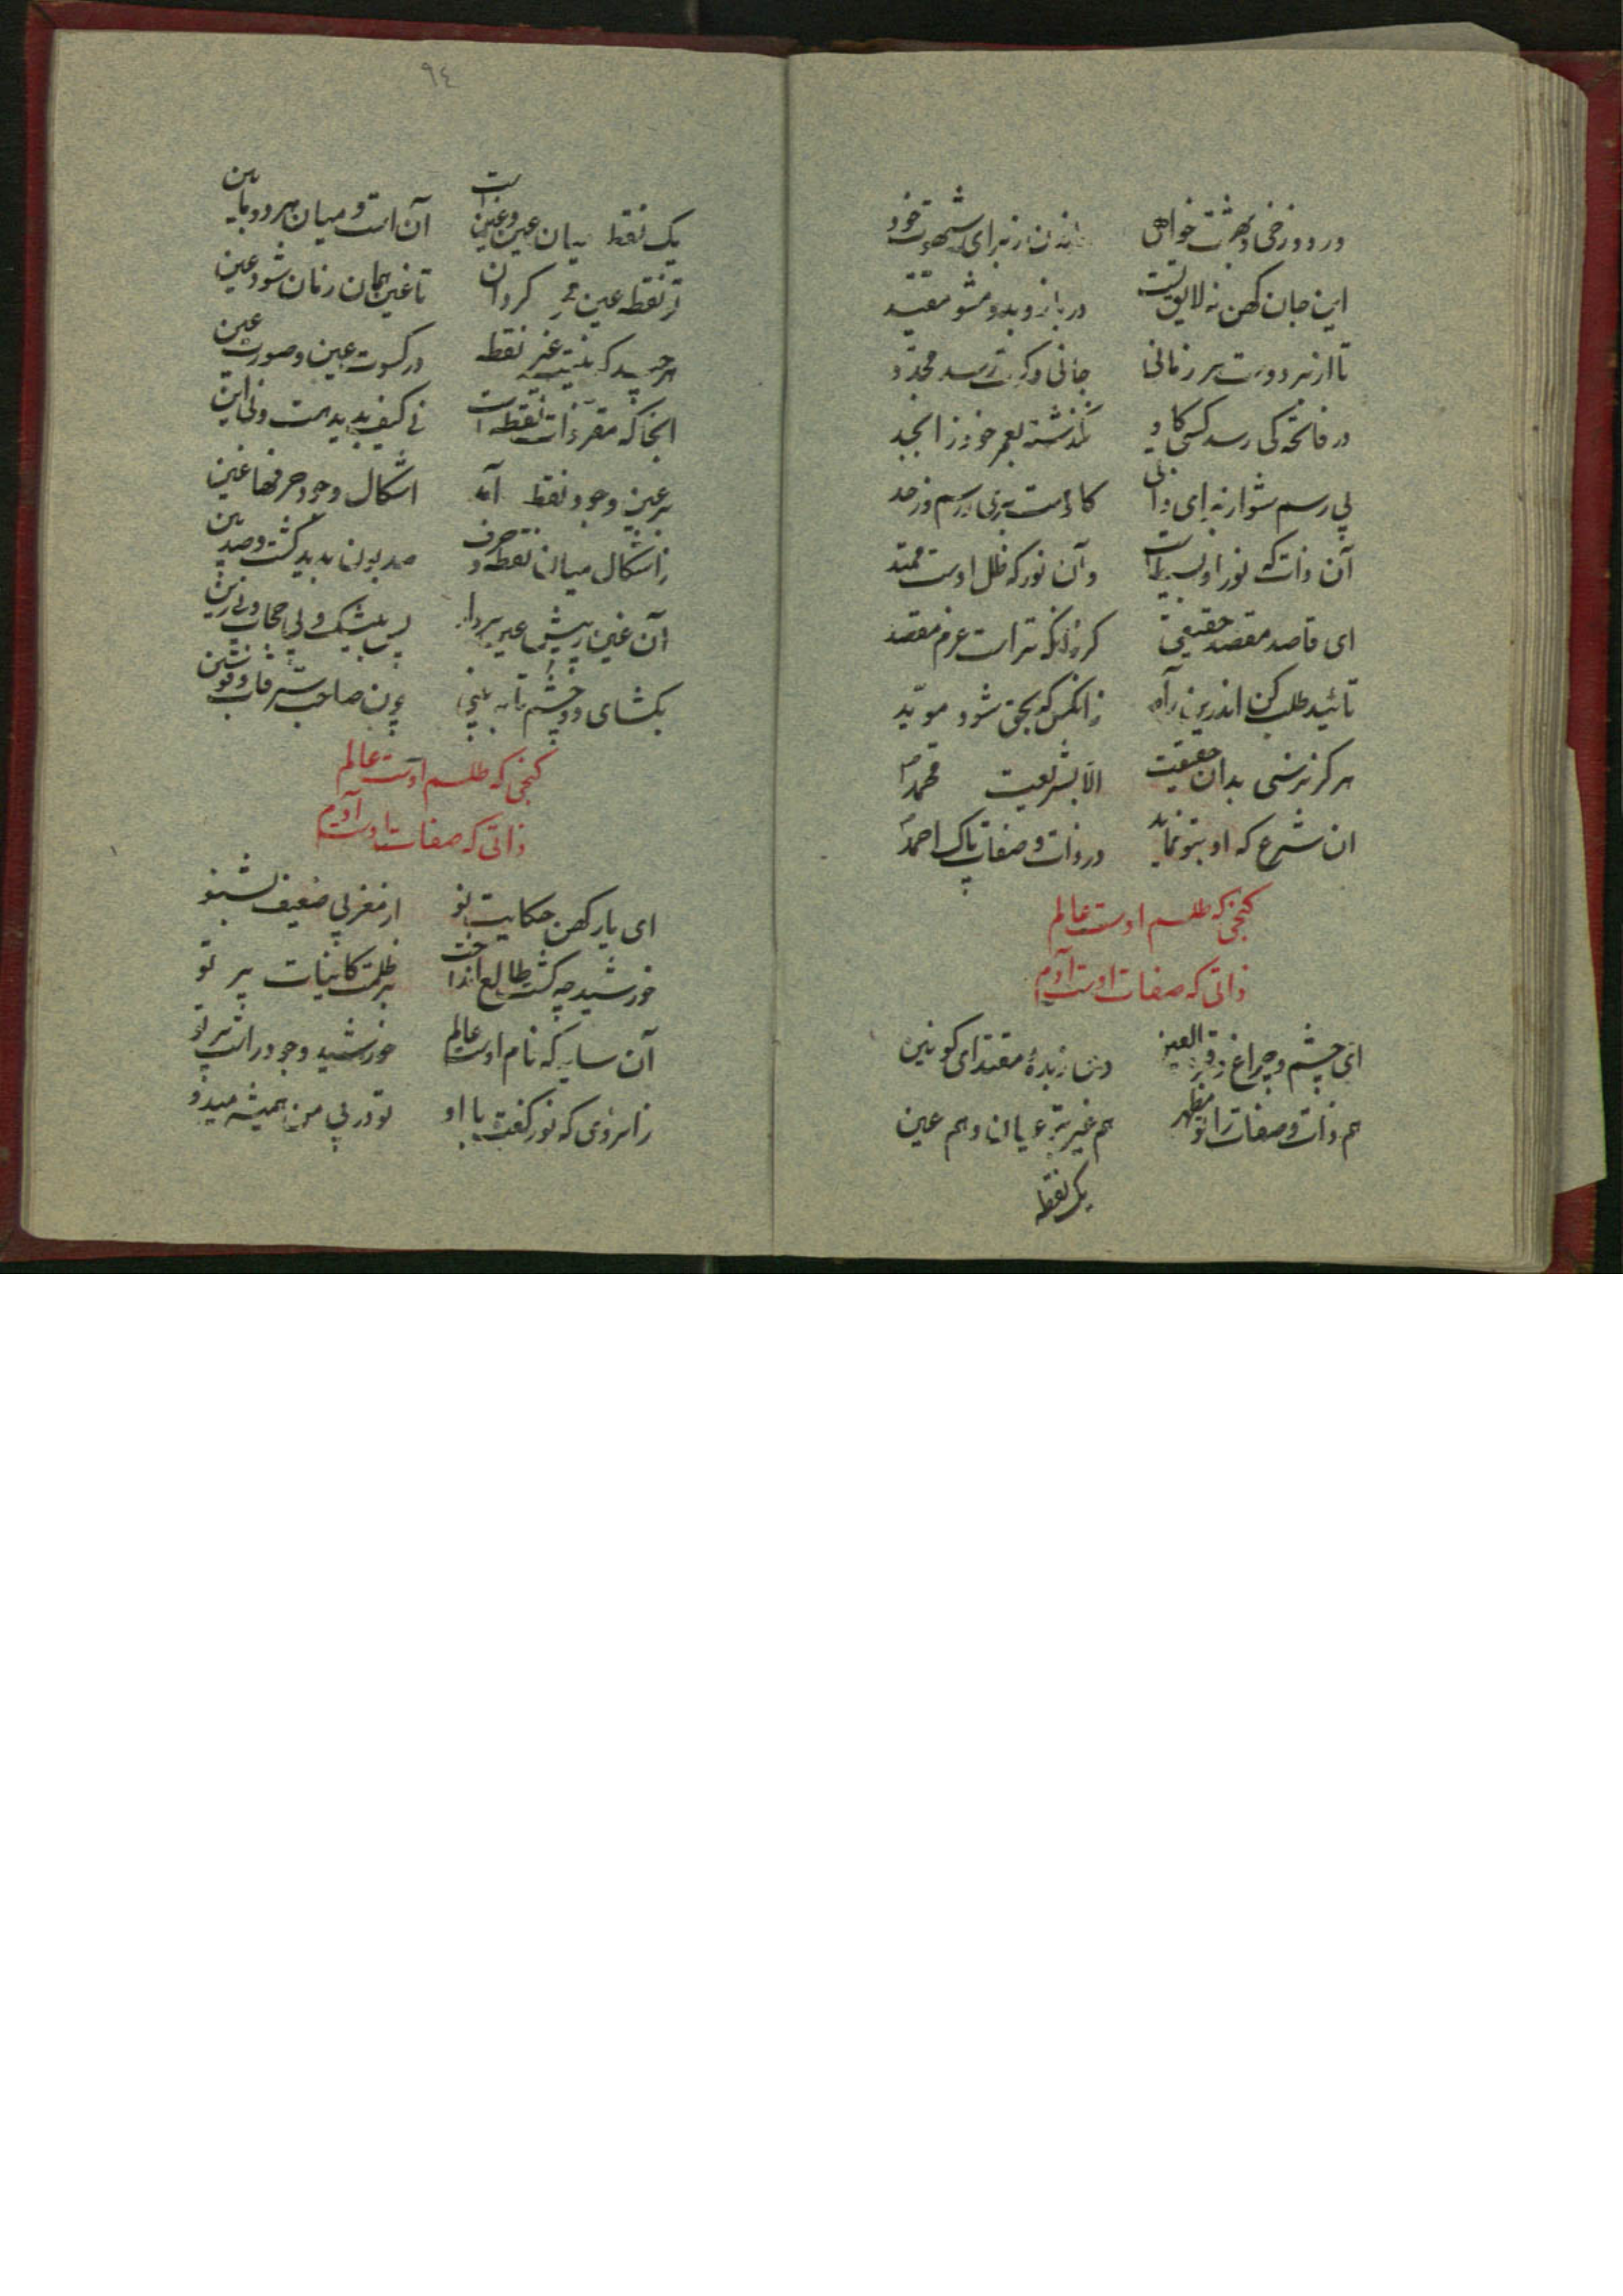 در دوزخی و بهشت خواهی از برای شهوت خود
این جان کهن نه لایق تست در باز و بدو مشو مقید
تا از بر دوست هر زمانی جانی دگرت رسد مجدد
در فاتحه کی رسد کسی کاو نگذشته بعمر خود ز ابجد
بی رسم شو ار نه ای دانی کاوست بری ز رسم و ز حد
آن ذات که نور او بسیط است و آن نور که ظل اوست ممتد
ای قاصد مقصد حقیقی گر زانکه تراست عزم مقصد
تائید طلب کن اندرین راه زانکس که بحق شود موید
هرگز نرسی بدان حقیقت الا بشریعت محمد
ان شرع که او بتو نماید در ذات و صفات پاک احمد
گنجی که طلسم اوست عالم
ذاتی که صفات اوست آدم
ای چشم و چراغ و قرة العین وی زبدهٔ مقتدای کونین
هم ذات و صفات را تو مظهر هم غیر تو عیان و هم عین
یک نقطه
٩٤
یک نقطه میان عین و غین است آن است و میان هر دو مابین
از نقطه عین محو گردان تا غین همان زمان شود عین
هر چند که نیست غیر نقطه در کسوت عین و صورت غین
انجا که مقر ذات نقطه است نی کیف پدید هست و نی این
بر عین وجود نقطه آمد اشکال وجود حرفها غین
ز اشکال میان نقطه و حرف صد بون پدید گشت و صد بین
آن غین ز پیش عین بردار پس بیشک و بی حجاب و بی رین
بگشای دو چشم تا ببینی چون صاحب سر قاب قوسین
گنجی که طلسم اوست عالم
ذاتی که صفات اوست آدم
ای یار کهن حکایت نو از مغربی ضعیف بشنو
خورشید چه گشت طالع انداخت بر ظلمت کاینات پر تو
آن سایه که نام اوست عالم خورشید وجود راست پرتو
زانروی که نور گفت با او تو در پی من همیشه میدو